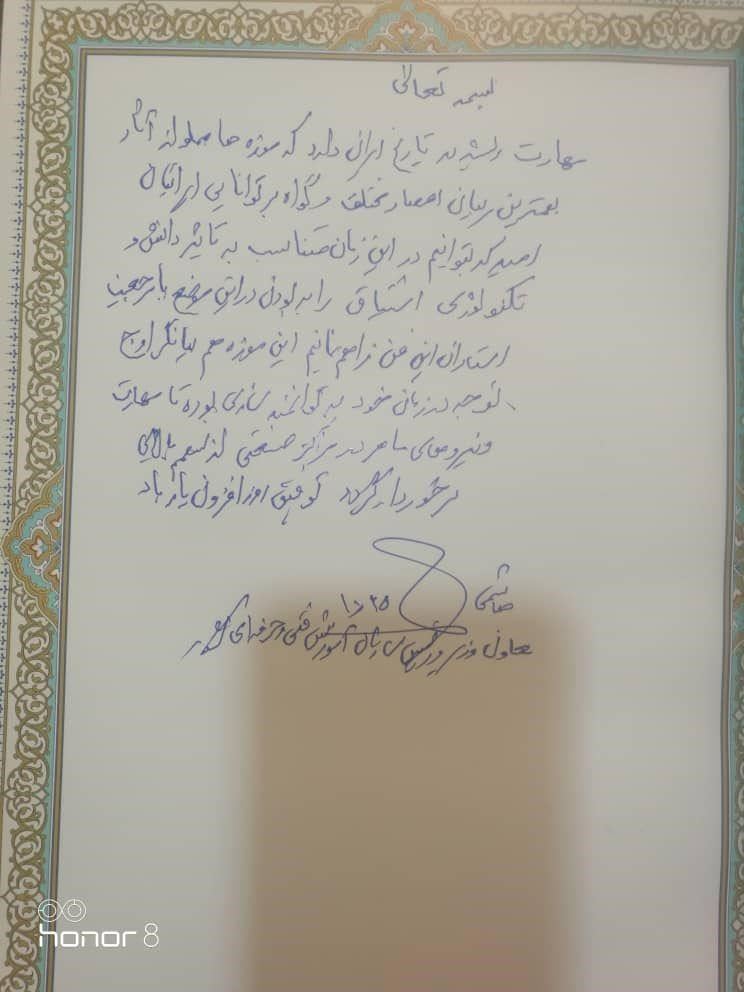 بسمه تعالی
مهارت ریشه در تاریخ ایران دارد که موزه ها مملو از آثار
بهترین اعصار مختلف و گواه بر توانایی ایرانیان
امید که بتوانیم در این زمان متناسب به تاثیر دانش و
تکنولوژی اشتیاق را در این موضع با
استادان این فن فراهم نمائیم این موزه هم بیانگر اوج
توجه در زمان خود به توانمند سازی بوده تا مهارت
و نیروهای ماهر در مراکز صنعتی از سهم بالایی
برخوردار گردد توفیق روز افزون یار باد
هاشمی
معاون وزیر و رئیس سازمان آموزش فنی و حرفه ای کشور
honor 8